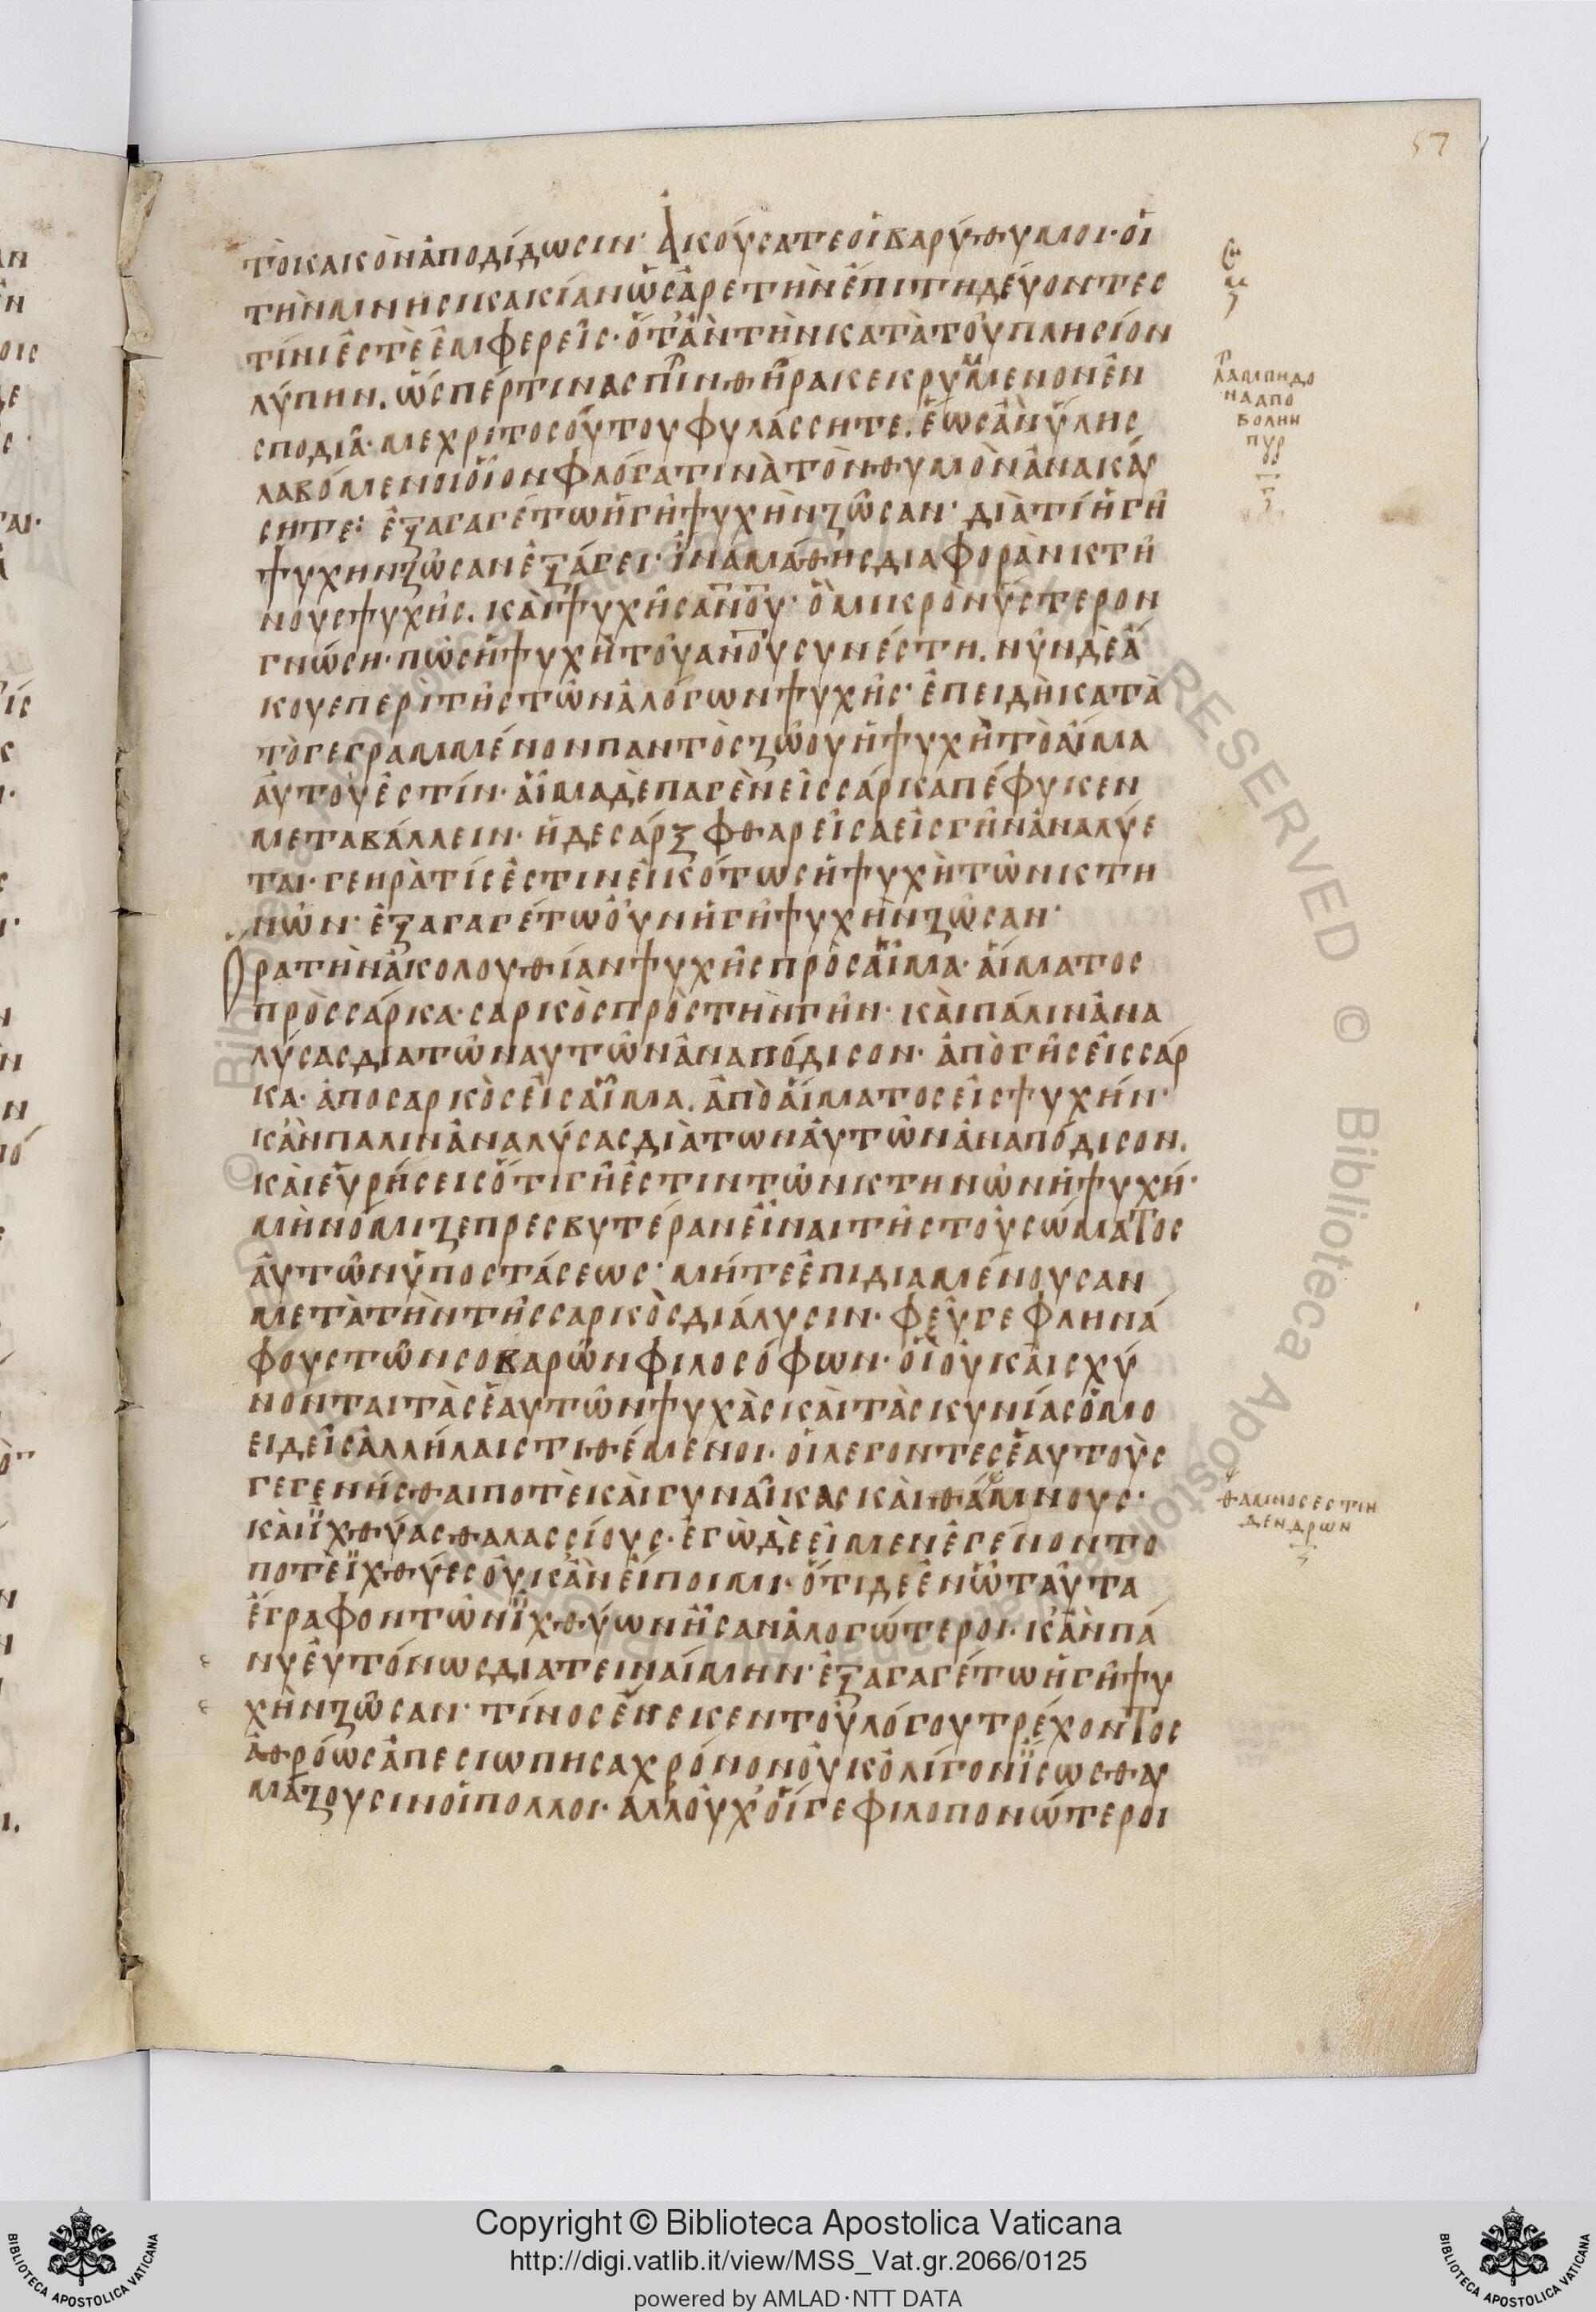 57
τὸ κακὸν ἀποδίδωσιν· Ἀκούσατε οἱ βαρύθυμοι· οἱ
τὴν μνησικακίαν ὡς ἀρετὴν ἐπιτηδεύοντες
τίνι ἐστὲ ἐμφερεῖς· ὅτ' ἂν τὴν κατὰ τοῦ πλησίον
λύπην. ὥσπέρ τινα σπινθῆρα κεκρυμμενον ἐν
σποδιᾶ· μεχρι τοσούτου φυλάσσητε. ἕως ἂν ὕλης
λαβόμενοι οἷον φλόγα τινὰ τὸν θυμὸν ἀνακαύ
σητε: ἐξαγαγέτω ἡ γῆ ψυχὴν ζῶσαν· διὰ τί ἡ γῆ
ψυχην ζῶσαν ἐξάγει· ἵνα μάθης διαφορὰν κτή
νους ψυχῆς. καὶ ψυχῆς ανου· ὃ μικρὸν ὕστερον
γνώση· πῶς ἡ ψυχὴ τοῦ ανου συνέστη. νῦν δὲ ἄ
κουε περὶ τῆς τῶν ἀλόγων ψυχῆς· ἐπειδὴ κατὰ
τὸ γεγραμμένον παντὸς ζώου ἡ ψυχὴ τὸ αἷμα
αὐτοῦ ἐστίν· αἷμα δὲ παγὲν εἰς σάρκα πέφυκεν
μεταβάλλειν· ἡ δε σάρξ φθαρεῖσα εἰς γῆν ἀναλύε
ται· γεηρὰ τίς ἐστιν εἰκότως ἡ ψυχὴ τῶν κτη
νῶν· ἐξαγαγέτω οὖν ἡ γῆ ψυχὴν ζῶσαν·
Ὅρα τὴν ἀκολουθίαν ψυχῆς πρὸς αἷμα· αἵματος
πρὸς σάρκα· σαρκὸς πρὸς τὴν γῆν· καὶ πάλιν ἀνα
λύσας δια τῶν αυτῶν ἀναπόδισον· ἀπὸ γῆς εἰς σάρ
κα· ἀπο σαρκὸς εἰς αἷμα. ἀπὸ αἵματος εἰς ψυχήν·
κἂν παλιν ἀναλύσας διὰ των αὐτῶν ἀναπόδισον.
καὶ εὑρήσεις ὅτι γῆ ἐστιν τῶν κτηνῶν ἡ ψυχή·
μὴ νόμιζε πρεσβυτέραν εἶναι τῆς τοῦ σώματος
αὐτῶν ὑποστάσεως· μήτε ἐπιδιαμένουσαν
μετὰ τὴν τῆς σαρκὸς διάλυσιν· φεῦγε φληνά
φους τῶν σοβαρῶν φιλοσόφων· οἳ οὐκ αἰσχύ
νονται τὰς ἑαυτῶν ψυχὰς καὶ τὰς κυνίας ὁμο
ειδεῖς ἀλλήλαις τιθέμενοι· οἱ λεγοντες ἑαυτοὺς
γεγενῆσθαι ποτὲ καὶ γυναῖκας καὶ θάμνους·
καὶ ϊχθύας θαλασσίους· ἐγὼ δὲ εἰ μεν ἐγένοντο
ποτὲ ϊχθύες οὐκ ἂν εἴποιμι· ὅτι δε ἐν ὧ ταῦτα
ἔγραφον τῶν ϊχθύων ἦσαν ἀλογώτεροι· κἂν πά
νυ εὐτόνως διατειναίμην· ἐξαγαγέτω ἡ γῆ ψυ
χὴν ζῶσαν· τίνος ἕνεκεν τοῦ λόγου τρέχοντος
ἀθρόως ἀπεσιωπησα χρόνον οὐκ ὀλίγον ϊσως θαυ
μάζουσιν οἱ πολλοι· ἀλλ' οὐχ' οἵ γε φιλοπονώτεροι
λαμπηδο
να απο
βολην
πυρ
θαμνος εστιν
δενδρων
© Biblioteca Apostolica Vaticana
RESERVED © Biblioteca Apostolica
Copyright © Biblioteca Apostolica Vaticana
http://digi.vatlib.it/view/MSS_Vat.gr.2066/0125
powered by AMLAD·NTT DATA
BIBLIOTECA APOSTOLICA VATICANA
BIBLIOTECA APOSTOLICA VATICANA